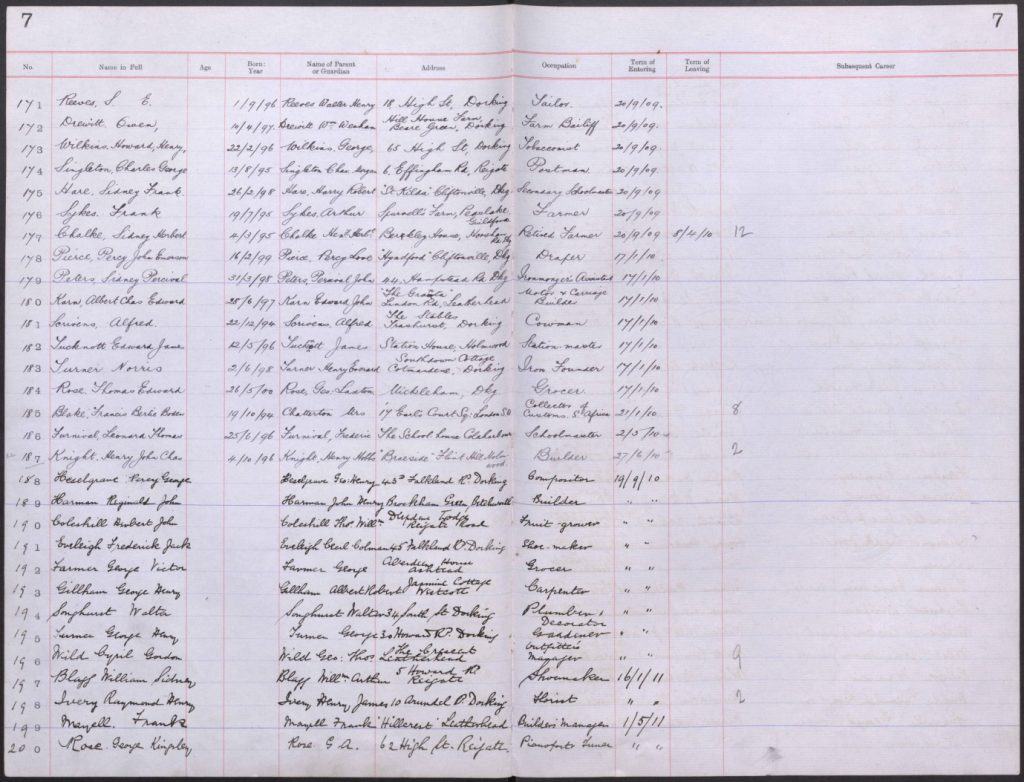 7 7
No. Name in Full Age Born: Year Name of Parent or Guardian Address Occupation Term of Entering Term of Leaving Subsequent Career
171 Reeves, S. E. 1/9/96 Reeves Walter Henry 18 High St, Dorking Tailor 20/9/09.
172 Drewitt Owen, 10/4/97 Drewitt Wm Hill House Farm, Beare Green, Dorking Farm Bailiff 20/9/09.
173 Wilkins, Howard, Henry, 22/2/96 Wilkins, George, 65 High St, Dorking Tobacconist 20/9/09.
174 Singleton, Charles George 13/8/95 Singleton Chas 6, Effingham Rd, Reigate Postman 20/9/09.
175 Hare, Sidney Frank 26/2/98 Hare, Harry Robert "St Kilda" Cliftonville, Dkg Secondary Schoolmaster 20/9/09
176 Sykes, Frank 19/7/95 Sykes, Arthur Farm, Peaslake, Guildford Farmer 20/9/09
177 Chalke, Sidney Herbert 4/3/95 Chalke Herbt Berkley House, Horsham Rd Dkg Retired Farmer 20/9/09 8/4/10 12
178 Pierce, Percy John Emerson 16/2/99 Pierce, Percy Love Cliftonville, Dkg Draper 17/1/10
179 Peters, Sidney Percival 31/3/98 Peters, Percival John 44, Hampstead Rd Dkg Ironmonger's Assistant 17/1/10
180 Karn, Albert Chas Edward 28/6/97 Karn Edward John London Rd, Leatherhead Motor & Carriage Builder 17/1/10
181 Scrivens, Alfred. 22/12/94 Scrivens, Alfred The Stables Dorking Cowman 17/1/10
182 Tucknott Edward James 12/5/96 Tuckett James Station House, Holmwood Station master 17/1/10
183 Turner Norris 2/6/98 Turner Henry Everard Southdown Cottage Cotmandene, Dorking Iron Founder 17/1/10
184 Rose Thomas Edward 26/5/00 Rose, Geo. Laxton Mickleham, Dkg Grocer 17/1/10
185 Blake, Francis Bertie Boden 19/10/94 Chatterton Mrs 17 Earls Court Sq. London SW Collector of Customs. S. Africa 21/1/10 8
186 Furnival, Leonard Thomas 25/6/96 Furnival, Frederic The School house Coleharbour Schoolmaster 2/5/10
187 Knight, Henry John Chas 4/10/96 Knight, Henry "Braeside" Flint Hill Holmwood. Builder 27/6/10 2
188 Heselgrave Percy George Heselgrave Geo. Henry 45 Falkland Rd Dorking Compositor 19/9/10
189 Harman Reginald John Harman John Henry Brockham Green Betchworth Builder " "
190 Coleshill Herbert John Coleshill Thos. Willm Lodge Reigate Road Fruit grower " "
191 Eveleigh Frederick Jack Eveleigh Cecil Colman 45 Falkland Rd Dorking Shoe-maker " "
192 Farmer George Victor Farmer George Aberdeen House Ashtead Grocer " "
193 Gillham George Henry Gillham Albert Robert Jasmine Cottage Westcott Carpenter " "
194 Songhurst Walter Songhurst Walter 34 South St Dorking Plumber & Decorator " "
195 Turner George Henry Turner George 30 Howard Rd. Dorking Gardener " "
196 Wild Cyril Gordon Wild Geo. Thos. The Crescent Leatherhead Outfitter's Manager " " 9
197 Blaff William Sidney Blaff Willm Arthur 5 Howard Rd Reigate Shoemaker 16/1/11
198 Ivery Raymond Henry Ivery Henry James 10 Arundel Rd Dorking Florist " " 2
199 Mayell Frank Mayell Frank "Hillcrest" Leatherhead Builder's Manager 1/5/11
200 Rose George Kingsley Rose G A. 62 High St. Reigate Pianoforte Tuner " "